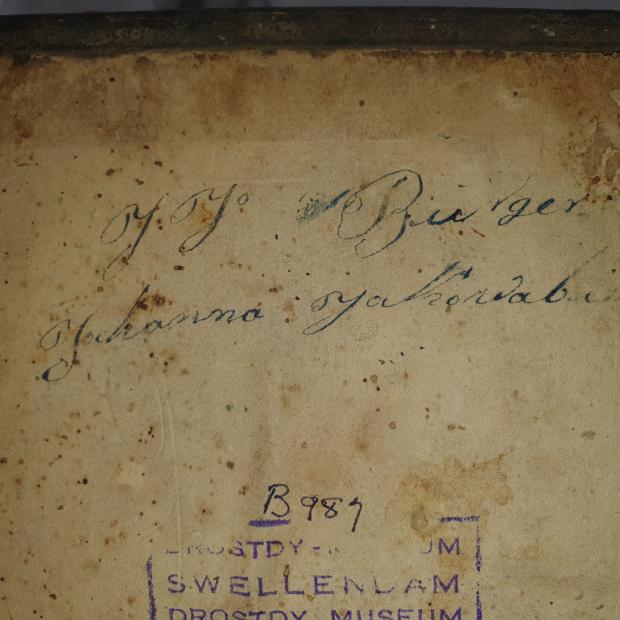 J J Burger
Johanna
B 987
DROSTDY-M UM
SWELLENDAM
DROSTDY MUSEUM